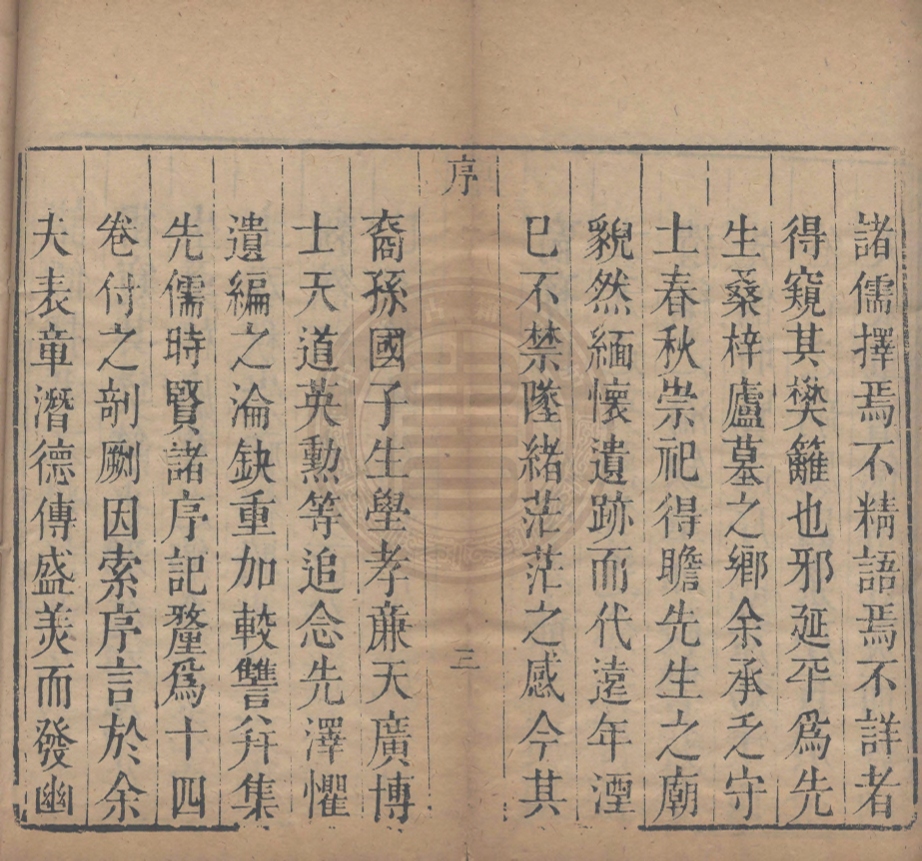 諸儒擇焉不精語焉不詳者
得窺其樊籬也邪延平爲先
生桑梓廬墓之鄉余承乏守
土春秋祟祀得瞻先生之廟
貌然緬懷遺跡而代遠年湮
已不禁墬緒茫茫之感今其
序
三
裔孫國子生學孝亷天廣博
士天道英勲等追念先澤懼
遺編之淪缺重加較讐并集
先儒時賢諸序記釐爲十四
卷付之剞劂因索序言於余
夫表章潛德傳盛美而發幽